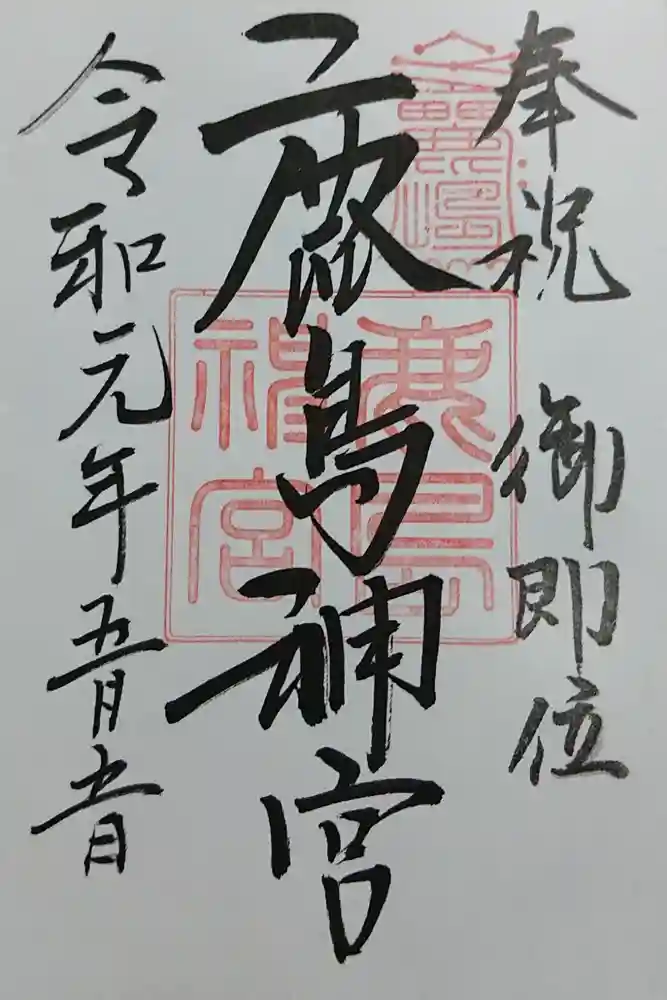 奉祝 御即位
鹿島神宮
鹿島
神宮
令和元年五月五日